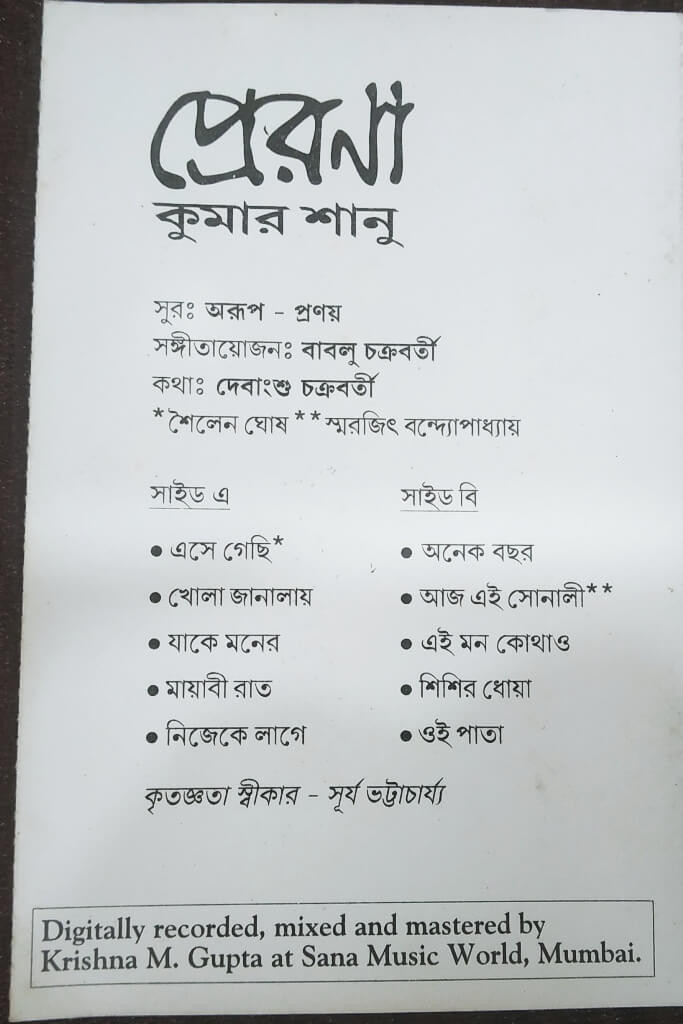 প্রেরণা
কুমার শানু
সুরঃ অরূপ - প্রণয়
সঙ্গীতায়োজনঃ বাবলু চক্রবর্তী
কথাঃ দেবাংশু চক্রবর্তী
*শৈলেন ঘোষ **স্মরজিৎ বন্দ্যোপাধ্যায়
সাইড এ
• এসে গেছি*
• খোলা জানালায়
• যাকে মনের
• মায়াবী রাত
• নিজেকে লাগে
সাইড বি
• অনেক বছর
• আজ এই সোনালী**
• এই মন কোথাও
• শিশির ধোয়া
• ওই পাতা
কৃতজ্ঞতা স্বীকার - সূর্য ভট্টাচার্য্য
Digitally recorded, mixed and mastered by
Krishna M. Gupta at Sana Music World, Mumbai.